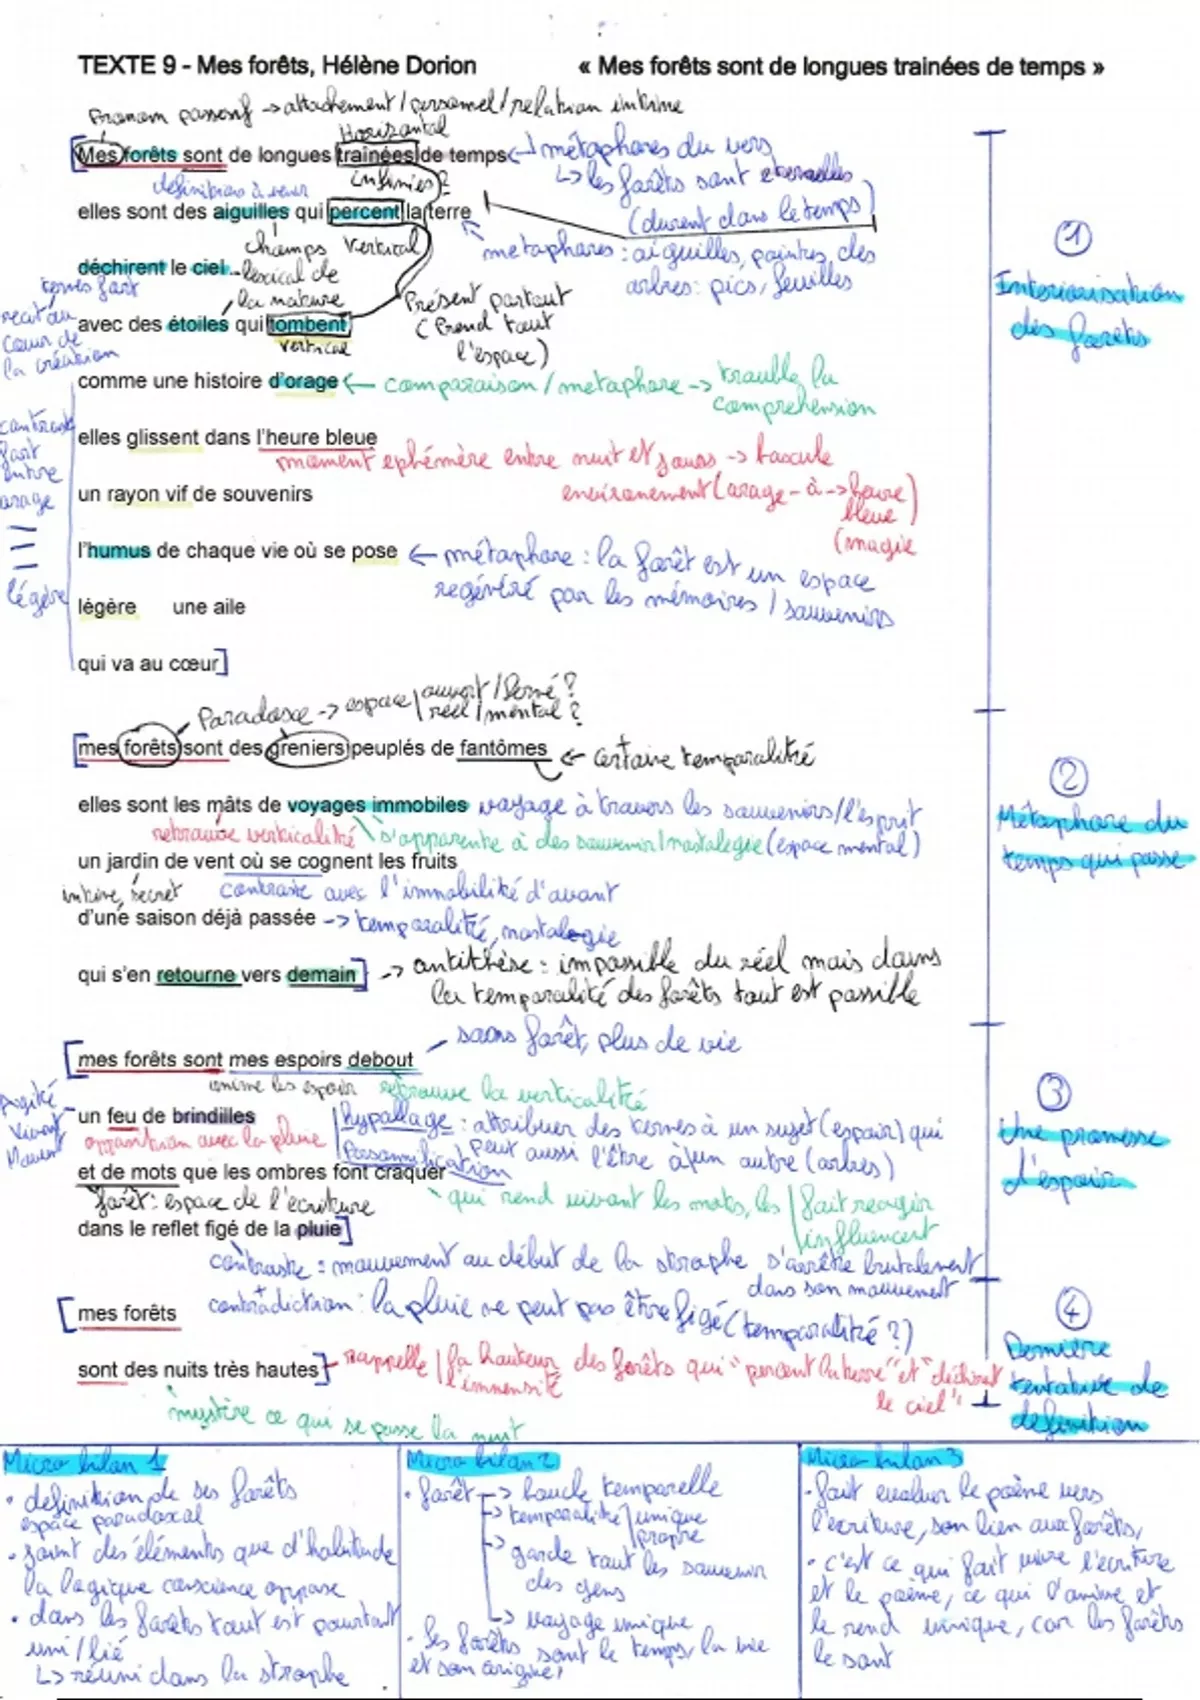 TEXTE 9 - Mes forêts, Hélène Dorion « Mes forêts sont de longues trainées de temps »
Pronom possessif -> attachement / personnel / relation intime
Horizontal
Mes forêts sont de longues trainées de temps
métaphores du vers
définition à venir
infinies ?
↳ les forêts sont eternelles
(durent dans le temps)
elles sont des aiguilles qui percent la terre
champs
lexical de
la nature
vertical
metaphores : aiguilles, pointes des
arbres : pics, feuilles
déchirent le ciel
termes fort
recit du
cœur de
la création
avec des étoiles qui tombent
vertical
Présent partout
(Prend tout
l'espace)
comme une histoire d'orage
<- comparaison / metaphore -> trouble la
comprehension
contraste
fort
entre
orage
légère
elles glissent dans l'heure bleue
moment ephémère entre nuit et jours -> bascule
environement (orage - à -> heure
bleue)
(magie
un rayon vif de souvenirs
l'humus de chaque vie où se pose
<- métaphore : la forêt est un espace
regénéré par les mémoires / souvenirs
légère une aile
qui va au cœur
Paradoxe -> espace ouvert / fermé ?
réel / mental ?
mes forêts sont des greniers peuplés de fantômes
<- certaine temporalité
elles sont les mâts de voyages immobiles
voyage à travers les souvenirs / l'esprit
retrouve verticalité
s'apparente à des souvenir / nostalegie (espace mental)
un jardin de vent où se cognent les fruits
intime, secret
contraste avec l'immobilité d'avant
d'une saison déjà passée
-> temporalité, nostalegie
qui s'en retourne vers demain
-> antithèse : impossible du réel mais dans
la temporalité des forêts tout est possible
sans forêt, plus de vie
mes forêts sont mes espoirs debout
anime les espoir
retrouve la verticalité
Agité
Vivant
Mouvent
un feu de brindilles
opposition avec la pluie
hypallage : attribuer des termes à un sujet (espoir) qui
peut aussi l'être à un autre (arbres)
Personnification
et de mots que les ombres font craquer
forêt : espace de l'écriture
qui rend vivant les mots, les fait reagir
influencent
dans le reflet figé de la pluie
contraste : mouvement au début de la strophe s'arrête brutalement
dans son mouvement
+
contradiction : la pluie ne peut pas être figé (temporalité ?)
mes forêts
sont des nuits très hautes
rappelle la hauteur des forêts qui "percent la terre" et "déchirent
le ciel"
l'immensité
mystère ce qui se passe la nuit
1
Interiorisation
des forêts
2
Métaphore du
temps qui passe
3
Une promesse
d'espoir
4
Dernière
tentative de
definition
Micro bilan 1
• definition de ses forêts
espace paradoxal
• joint des éléments que d'habitude
la logique conscience oppose
• dans les forêts tout est pourtant
uni / lié
↳ réuni dans la strophe
Micro bilan 2
• forêt -> boucle temporelle
-> temporalité unique
propre
-> garde tout les souvenir
des gens
-> voyage unique
• Ses forêts sont le temps, la vie
et son origine,
Micro bilan 3
• fait evoluer le poème vers
l'ecriture, son lien aux forêts,
• c'est ce qui fait vivre l'écriture
et le poème, ce qui l'anime et
le rend unique, car les forêts
le sont